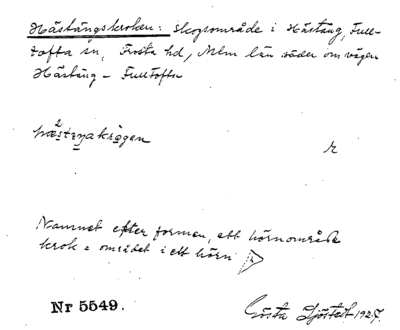 Hästängskroken: skogsområde i Hästäng, Full-
tofta sn, Frosta hd, Mlm län söder om vägen
Hästäng – Fulltofta
r
Namnet efter formen, ett hörnområde
krok = området i ett hörn
Nr 5549.
Gösta Sjöstedt 1927.